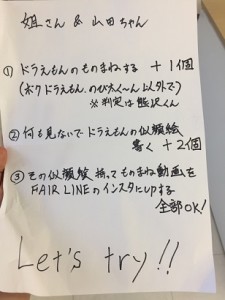 姐さん & 山田ちゃん
① ドラえもんのものまねする +1個
(ボクドラえもん、のび太く〜ん以外で)
※判定は熊沢くん
② 何も見ないでドラえもんの似顔絵
書く +2個
③ その似顔絵持ってものまね動画を
FAIR LINEのインスタにupする
全部OK!
Let's try!!